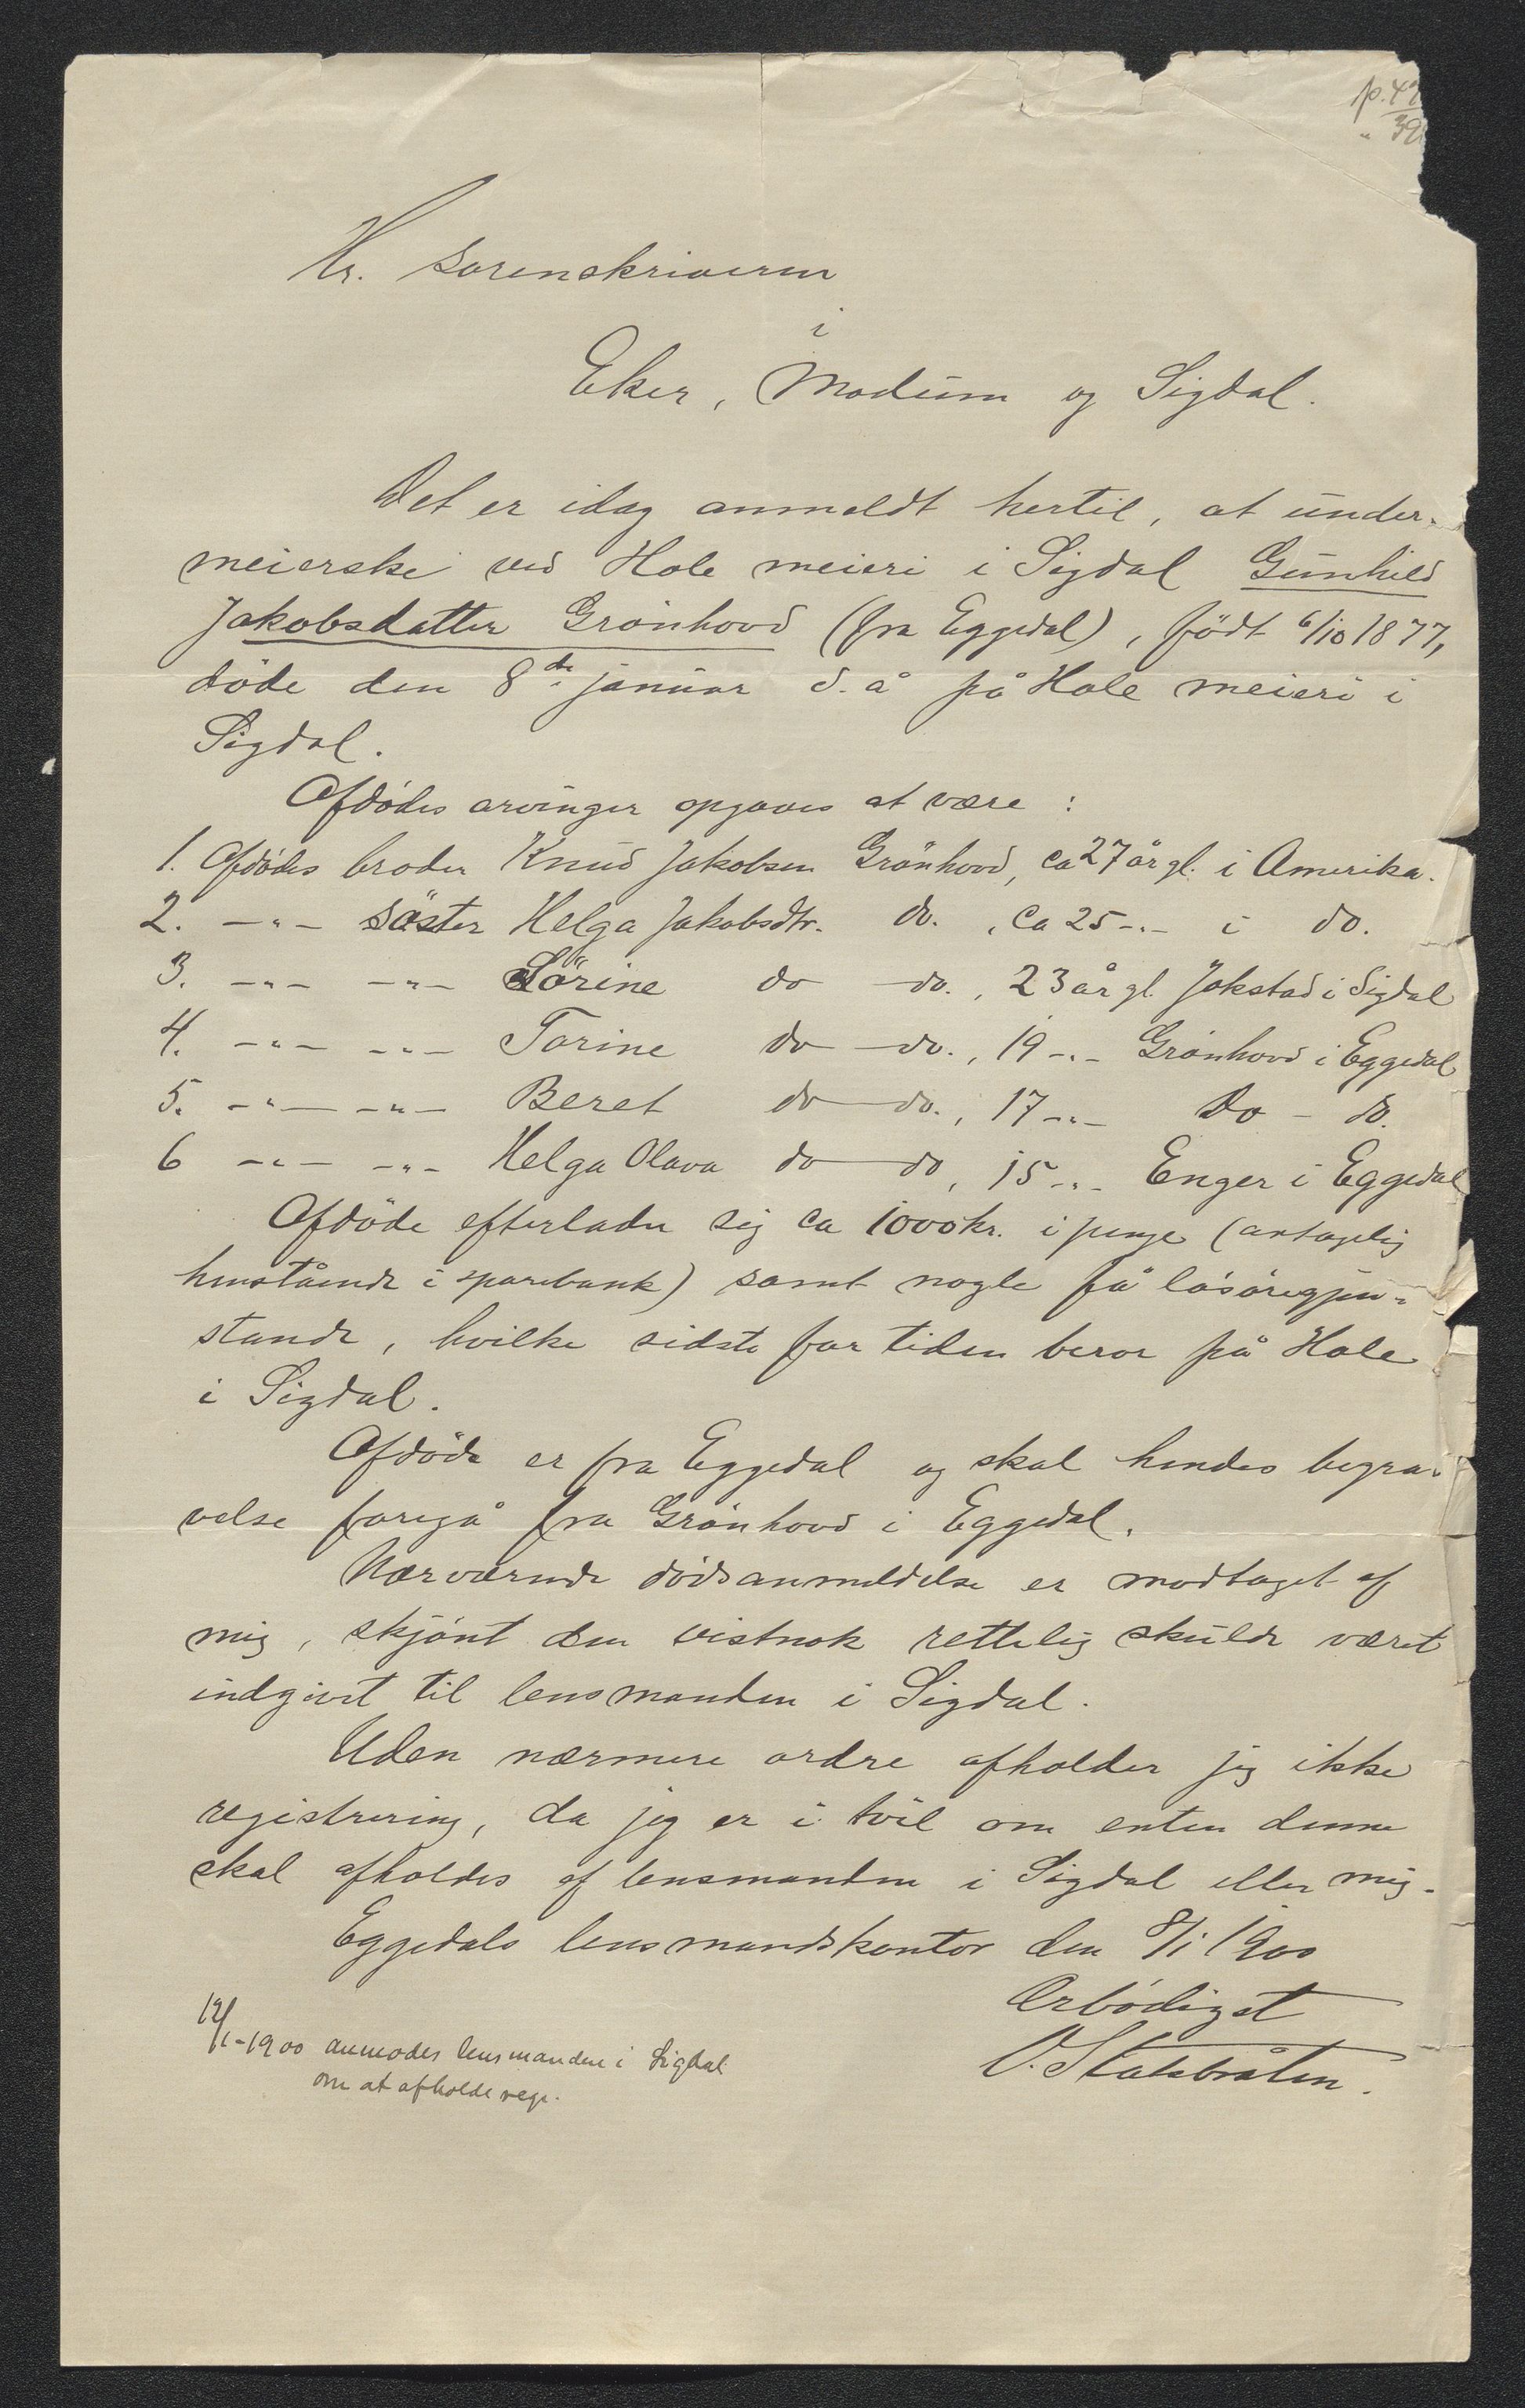 p. 47
" 39
Hr. Sorenskriveren
i
Eker, Modum og Sigdal.
Det er idag anmeldt hertil, at under-
meierske ved Hole meieri i Sigdal Gunhild
Jakobsdatter Grönhovd (fra Eggedal), födt 6/10 1877,
döde den 8de januar d. å på Hole meieri i
Sigdal.
Afdödes arvinger opgaves at være :
1. Afdödes broder Knud Jakobsen Grönhovd, ca 27 år gl. i Amerika.
2. -"- söster Helga Jakobsdtr. do. , ca 25 -"- i do.
3. -"- -"- Sörine do do. , 23 år gl. Jokstad i Sigdal
4. -"- -"- Torine do do. , 19 -"- Grönhovd i Eggedal
5. -"- -"- Beret do do. , 17 -"- Do - do.
6 -"- -"- Helga Olava do do , 15 -"- Enger i Eggedal
Afdöde efterlader sig ca 1000 kr. i penge (antagelig
henstående i sparebank) samt nogle få lösöregjen-
stande, hvilke sidste for tiden beror på Hole
i Sigdal.
Afdöde er fra Eggedal og skal hendes begra-
velse foregå fra Grönhovd i Eggedal.
Nærværende dödsanmeldelse er modtaget af
mig, skjönt den vistnok rettelig skulde været
indgivet til lensmanden i Sigdal.
Uden nærmere ordre afholder jeg ikke
registrering, da jeg er i tvil om enten denne
skal afholdes af lensmanden i Sigdal eller mig.
Eggedals lensmandskontor den 8/1 1900
Ærbödigst
O. Stakebråten.
12/1-1900 anmodes lensmanden i Sigdal
om at afholde regi.